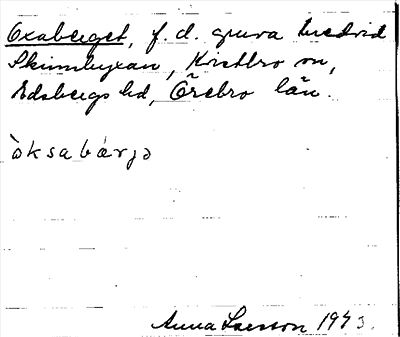 Oxaberget, f. d. gruva bredvid
Skinnbyxan, Kvistbro sn,
Edsbergs hd, Örebro län.
òksabárjə
Anna Larsson 1973.